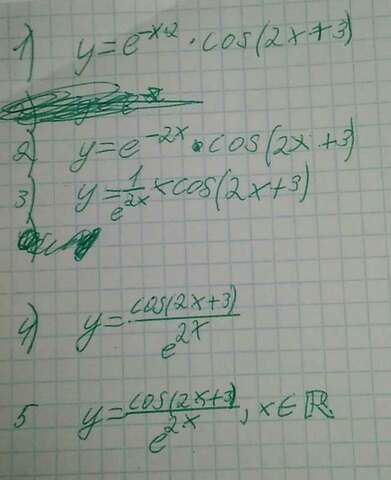 1) y=e^-x·2 · cos(2x+3)
2) y=e^-2x · cos(2x+3)
3) y=1/e^2x × cos(2x+3)
4) y=cos(2x+3)/e^2x
5 y=cos(2x+3)/e^2x, x∈ℝ